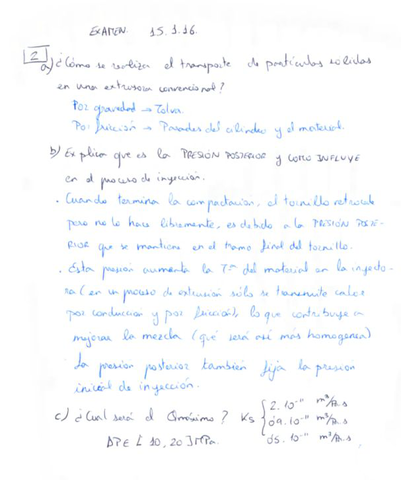 EXAMEN. 15.1.16.
2
a) ¿Cómo se realiza el transporte de partículas sólidas
en una extrusora convencional?
Por gravedad → Tolva.
Por fricción → Paredes del cilindro y el material.
b) Explica que es la PRESIÓN POSTERIOR y COMO INFLUYE
en el proceso de inyección.
· Cuando termina la compactación, el tornillo retrocede
pero no lo hace libremente, es debido a la PRESIÓN POSTE-
RIOR que se mantiene en el tramo final del tornillo.
· Esta presion aumenta la Tª del material en la inyecto-
ra (en un proceso de extrusión sólo se transmite calor
por conduccion y por fricción), lo que contribuye a
mejorar la mezcla (que será así más homogenea)
La presion posterior también fija la presion
inicial de inyección.
c) ¿Cual será el Qmáximo? Ks { 2.10⁻¹¹ m³/Pa.s
0'9.10⁻¹¹ m³/Pa.s
0'5.10⁻¹¹ m³/Pa.s
ΔP ∈ [10,20] MPa.